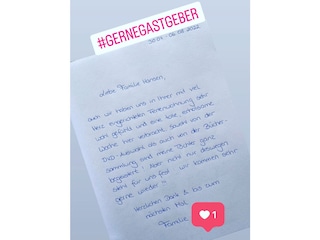 #GERNEGASTGEBER
30.07. - 06.08.2022
Liebe Familie Hansen,
auch wir haben uns in Ihrer mit viel
Herz eingerichteten Ferienwohnung sehr
wohl gefühlt und eine tolle, erholsame
Woche hier verbracht. Sowohl von der
DVD-Auswahl als auch von der Bücher-
sammlung sind meine Töchter ganz
begeistert. Aber nicht nur deswegen
steht für uns fest: wir kommen sehr
gerne wieder!
Herzlichen Dank & bis zum
nächsten Mal,
Familie
1